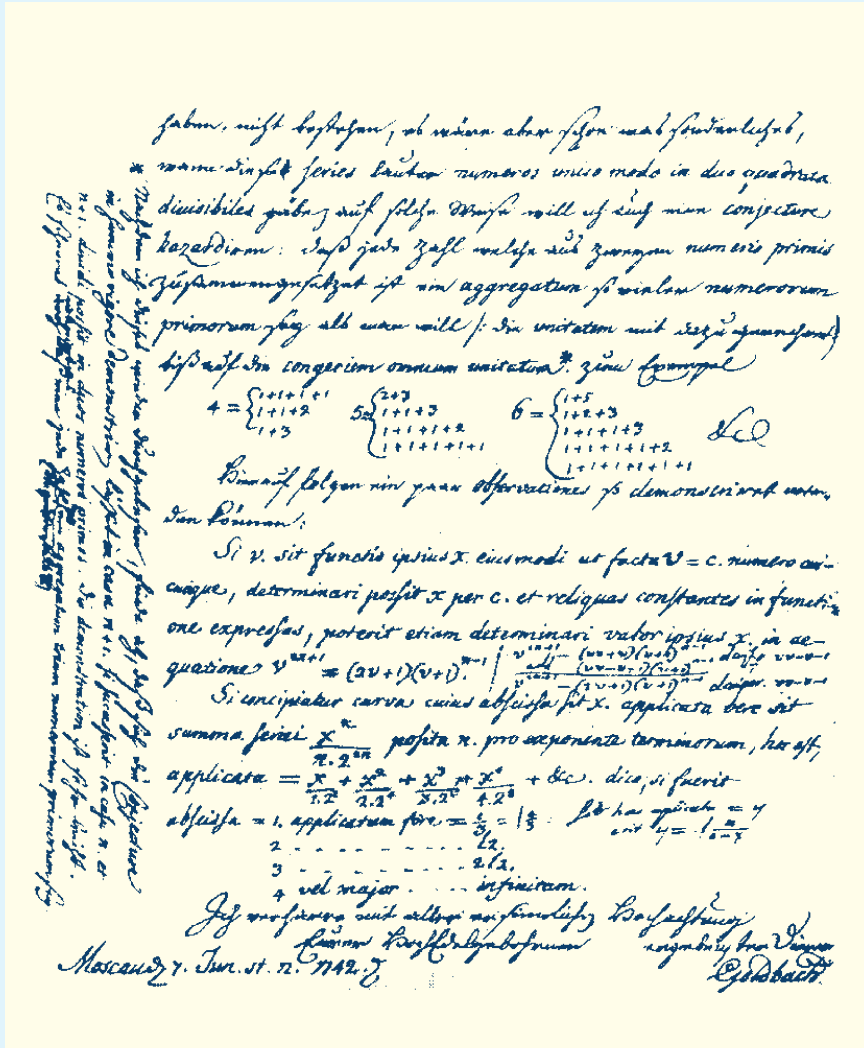 haben, nicht bestehen, es wäre aber schon was sonderliches,
wann series lauter numeros unico modo in duo quadrata
divisibiles gäbe, auf solche Weise will ich auch eine conjecture
hazardiren: daß jede Zahl welche aus zweyen numeris primis
zusammengesetzet ist ein aggregatum so vieler numerorum
primorum sey als man will /: die unitatem mit dazu gerechnet /
biß auf die congeriem omnium unitatum*. zum Exempel
4 = { 1+1+1+1
1+1+2
1+3
5 = { 2+3
1+1+3
1+1+1+2
1+1+1+1+1
6 = { 1+5
1+2+3
1+1+1+3
1+1+1+1+2
1+1+1+1+1+1
&c
Hierauf folgen ein paar observationes so demonstriret wer-
den können:
Si v. sit functio ipsius x. eiusmodi ut facta v = c. numero cui-
cunque, determinari possit x per c. et reliquas constantes in functi-
one expressas, poterit etiam determinari valor ipsius x. in ae-
quatione v^{2n+1} = (2v+1)(v+1)^{n-1}
Si concipiatur curva cuius abscissa sit x. applicata vero sit
summa seriei x^n/(n.2^{2n}) posita n. pro exponente terminorum, hoc est,
applicata = x/(1.2^2) + x^2/(2.2^4) + x^3/(3.2^6) + x^4/(4.2^8) + &c. dico, si fuerit
abscissa = 1. applicatam fore = l 4/3
2 - - - - l2.
3 - - - - 2l2.
4 vel major - - - infinitam.
Ich verharre mit aller ersinnlichen Hochachtung
Eurer HochEdelgebohrnen
ergebenster Diener
Moscau d. 7. Jun. st. n. 1742.
Goldbach.
* Nachdem ich dieses wieder durchgelesen, finde ich, daß sich die conjecture
in summo rigore demonstriren lässet in casu n+1. si successerit in casu n. et
n+1. dividi possit in duos numeros primos. Die demonstration ist sehr leicht.
Es scheinet daß eine jede Zahl ein aggregatum trium numerorum primorum sey.